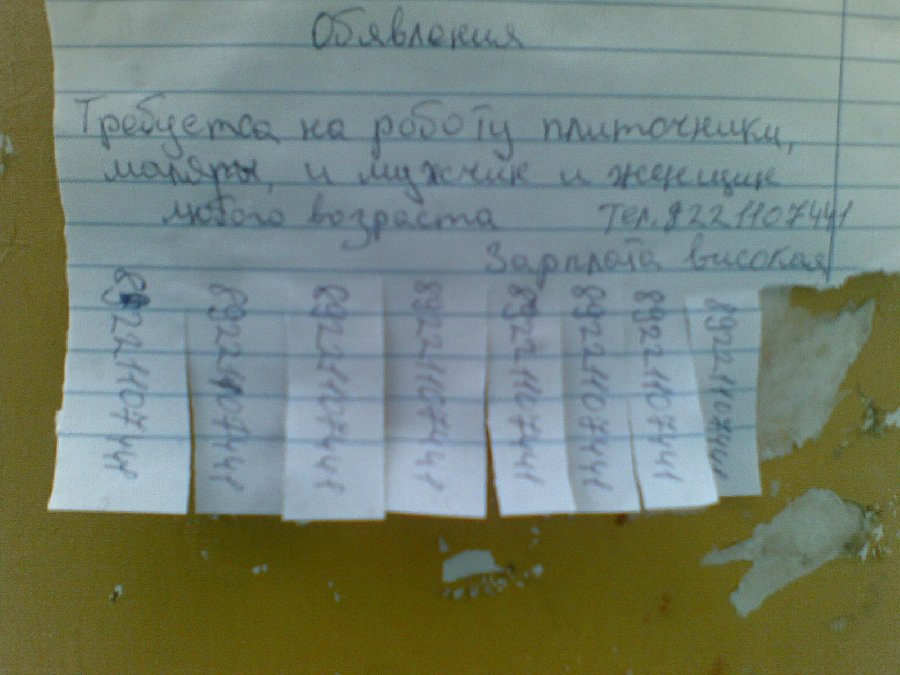 Обявления
Требуетса на роботу плиточники,
маляры, и мужчик и женщик
любого возраста тел. 9221107441
Зарплата високая
89221107441
89221107441
89221107441
89221107441
89221107441
89221107441
89221107441
89221107441